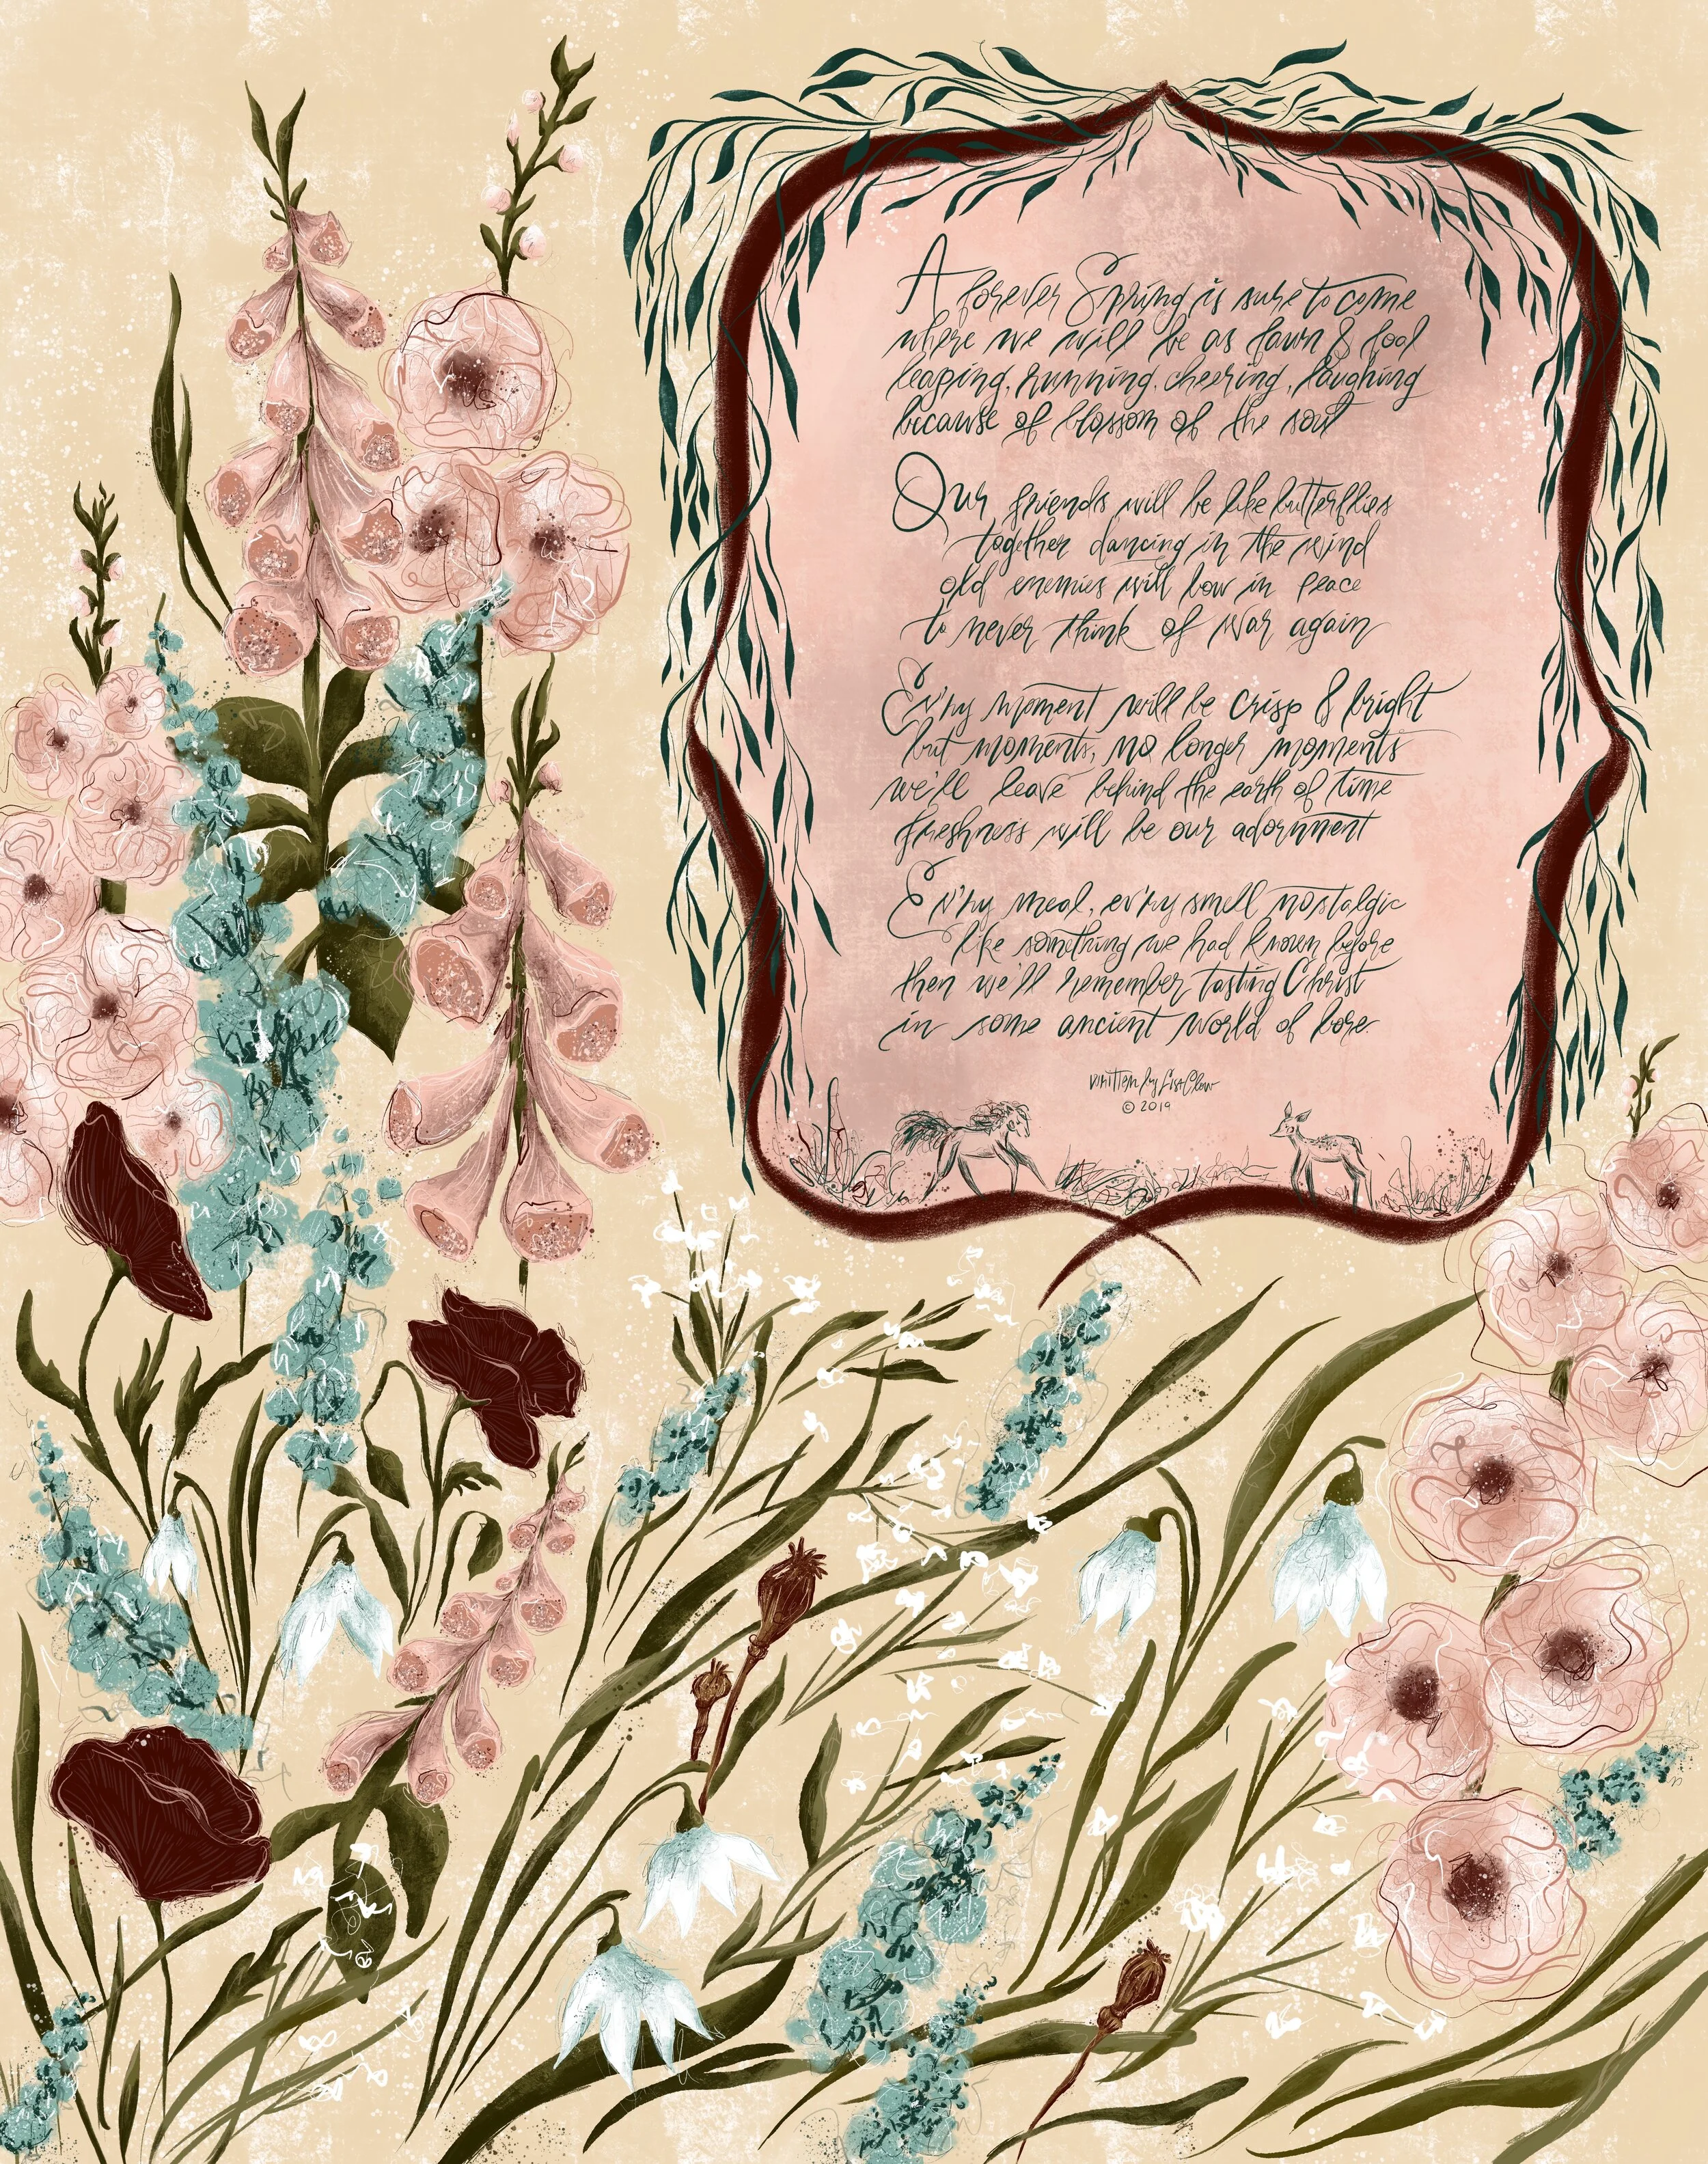 A forever Spring is sure to come
where we will be as fawn & foal
leaping, running, cheering, laughing
because of blossom of the soul
Our friends will be like butterflies
together dancing in the wind
old enemies will bow in peace
to never think of war again
Ev'ry moment will be crisp & bright
but moments, no longer moments
we'll leave behind the earth of time
freshness will be our adornment
Ev'ry meal, ev'ry smell nostalgic
like something we had known before
then we'll remember tasting Christ
in some ancient world of lore.
written by
© 2019